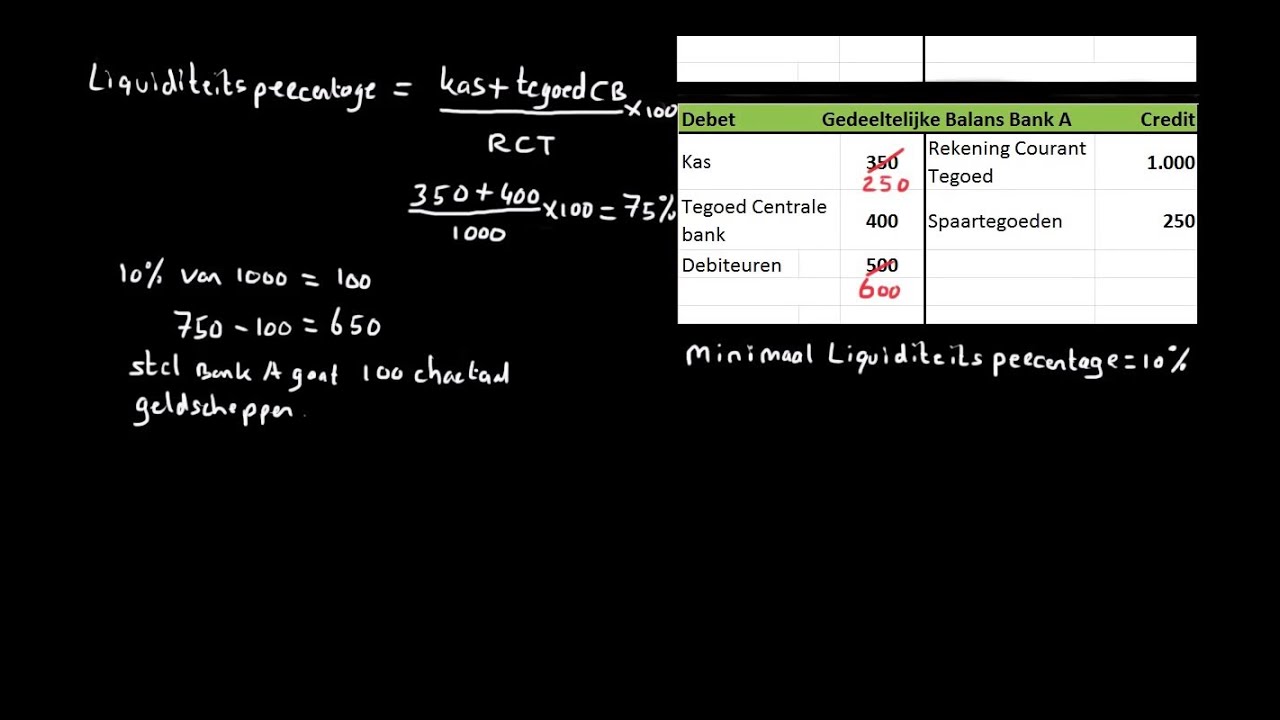 Liquiditeitspercentage = kas + tegoed CB
x100
RCT
350 + 400 x100 = 75%
1000
10% van 1000 = 100
750 - 100 = 650
stel Bank A gaat 100 chartaal
geldscheppen.
Debet Gedeeltelijke Balans Bank A Credit
Kas 350 Rekening Courant Tegoed 1.000
250
Tegoed Centrale bank 400 Spaartegoeden 250
Debiteuren 500
600
Minimaal Liquiditeits percentage = 10%